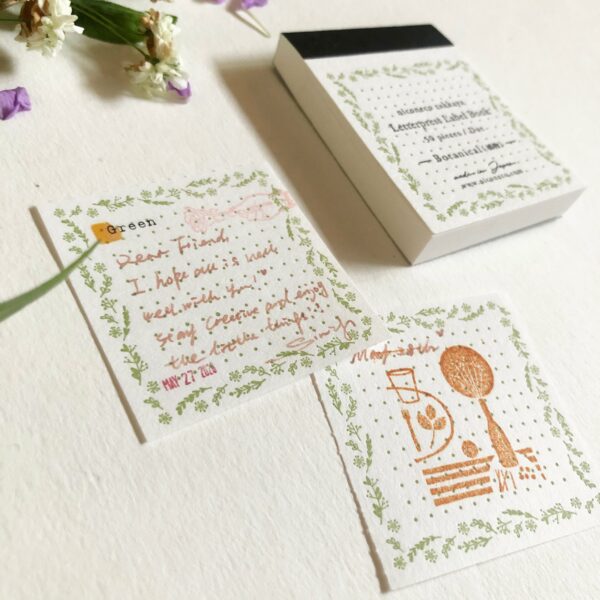 niconeco zakkaya
Letterpress Label Book
50 pieces / 1
Botanical
made in Japan
www.niconeco.com
Green
Dear Friend,
I hope all is well
well with You!
Stay Creative and enjoy
the little things!
MAY 27 2020
May 28th